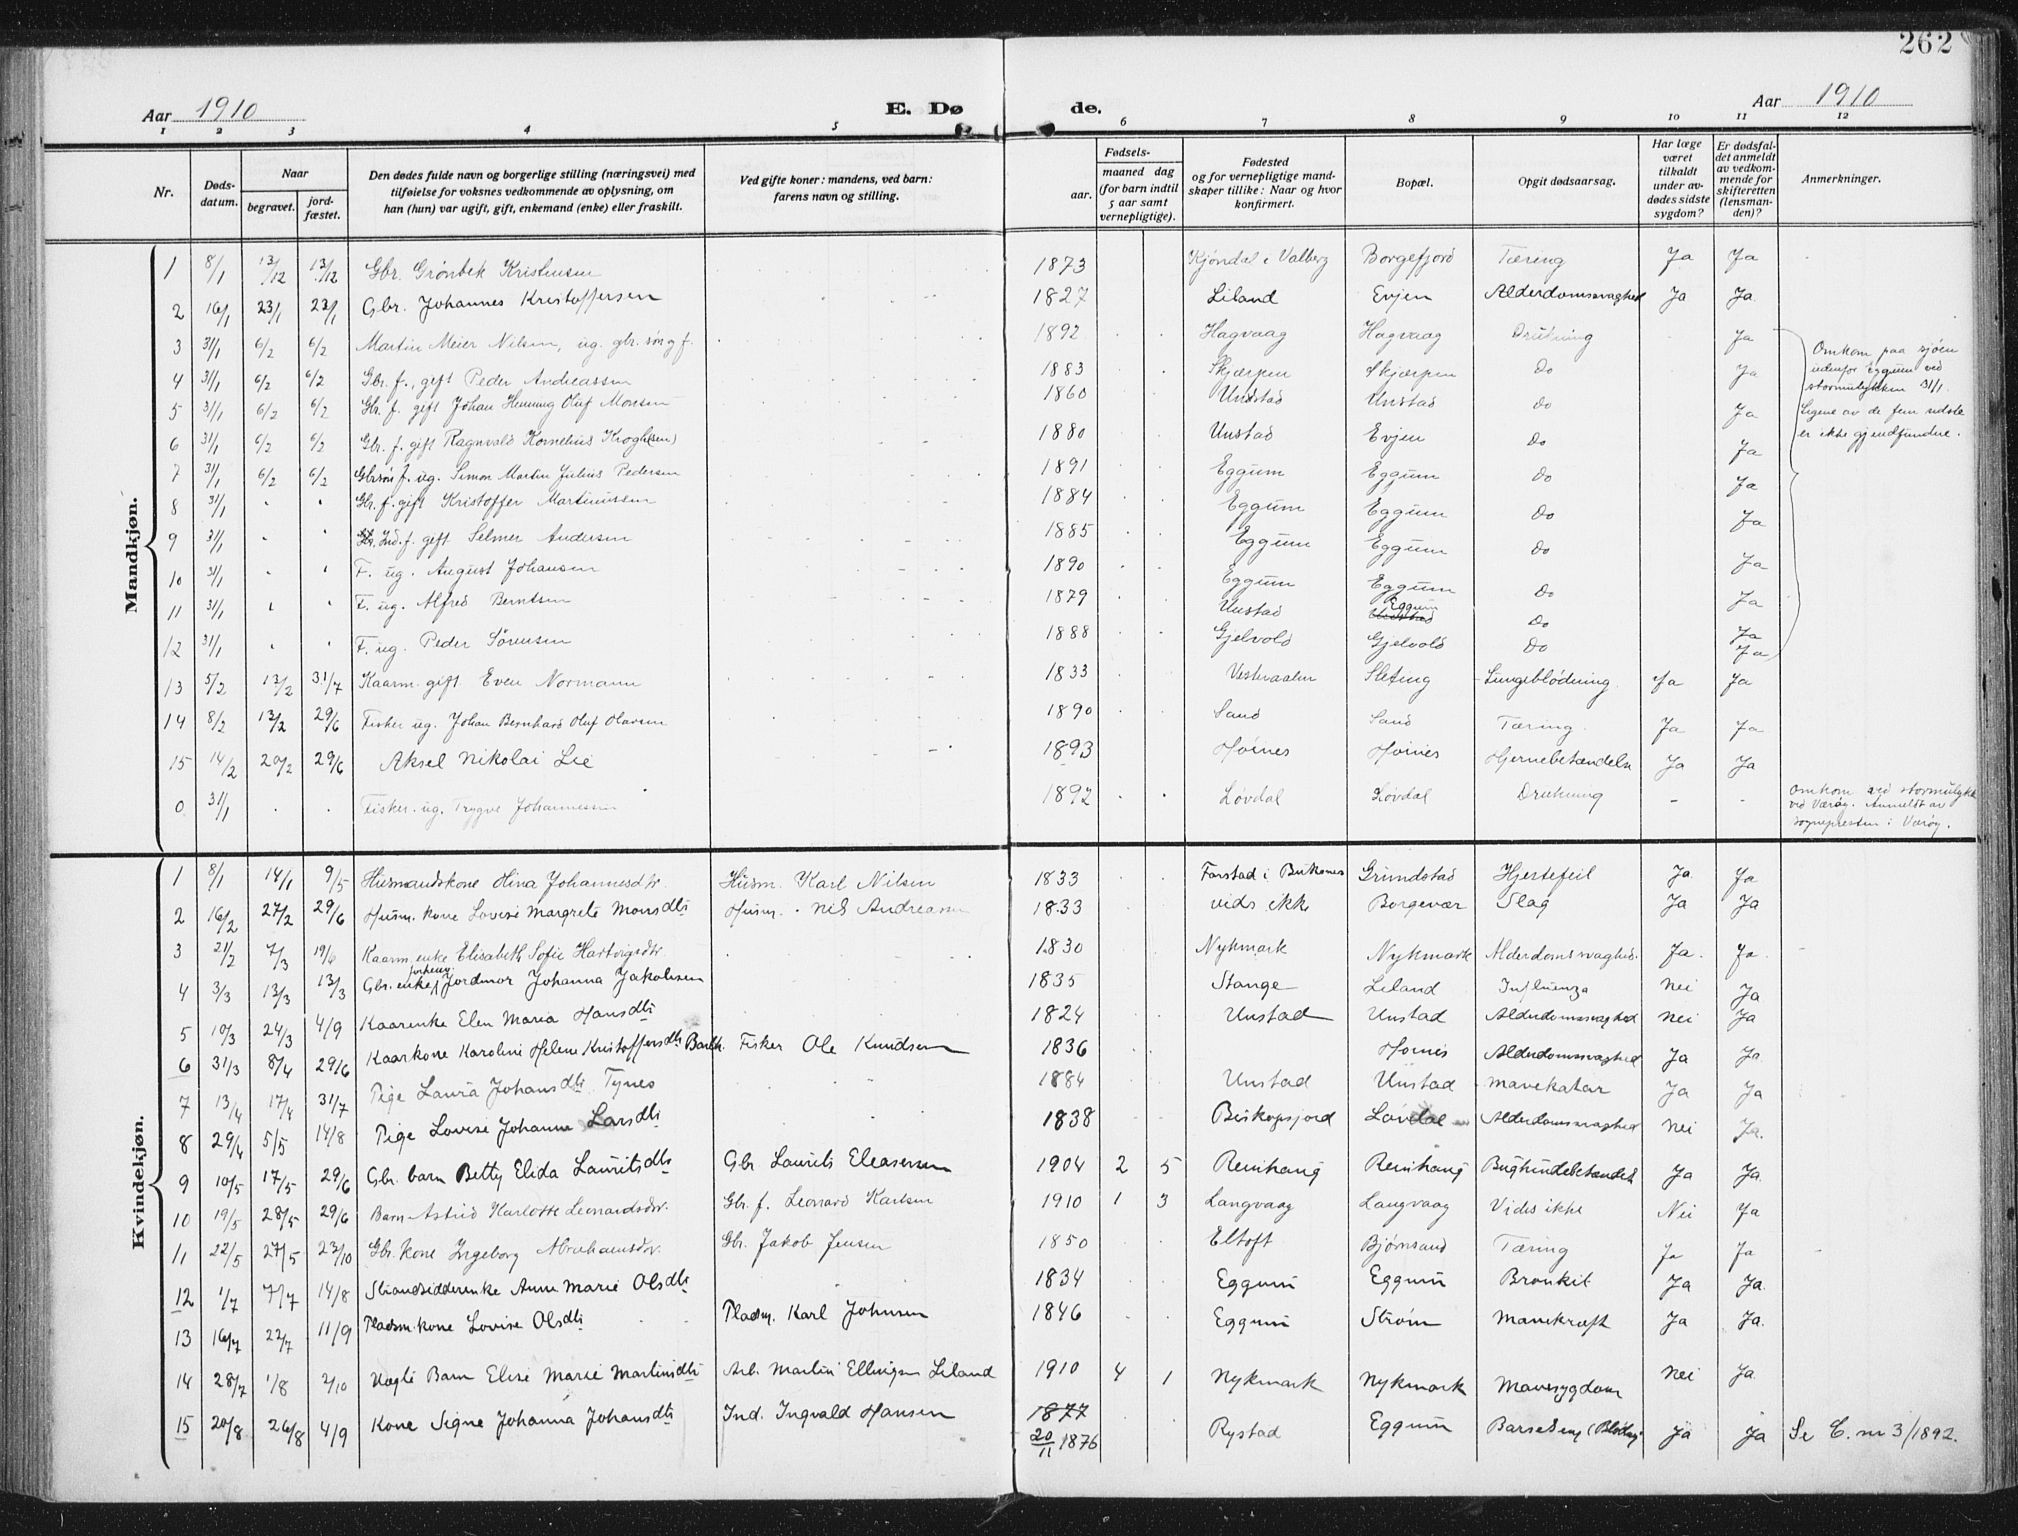 262
Aar 1910 E. Døde. Aar 1910
1 2 3 4 5 6 7 8 9 10 11 12
Nr. Døds-datum. Naar begravet. jord-fæstet. Den dødes fulde navn og borgerlige stilling (næringsvei) med tilføielse for voksnes vedkommende av oplysning, om han (hun) var ugift, gift, enkemand (enke) eller fraskilt. Ved gifte koner: mandens, ved barn: farens navn og stilling. Fødsels- aar. maaned dag (for barn indtil 5 aar samt vernepligtige). Fødested og for vernepligtige mand-skaper tillike: Naar og hvor konfirmert. Bopæl. Opgit dødsaarsag. Har læge været tilkaldt under av-dødes sidste sygdom? Er dødsfal-det anmeldt av vedkom-mende for skifteretten (lensman-den)? Anmerkninger.
Mandkjøn.
1 8/1 13/12 13/12 Gbr. Grønbek Kristensen 1873 Kjøndal i Valberg Borgefjord Tæring Ja Ja
2 16/1 23/1 23/1 Gbr. Johannes Kristoffersen 1827 Liland Evjen Alderdomssvaghed Ja Ja
3 31/1 6/2 6/2 Martin Meier Nilsen, ug. gbr. søn g f. 1892 Hagvaag Hagvaag Drukning Ja
4 31/1 6/2 6/2 Gbr. f., gift Peder Andreassen 1883 Skjærpen Skjærpen Do Ja
5 31/1 6/2 6/2 Gbr. f. gift Johan Henning Oluf Monsen 1860 Unstad Unstad Do Ja
6 31/1 6/2 6/2 Gbr. f. gift Ragnvald Kornelius Krogh(sen) 1880 Unstad Evjen Do Ja
7 31/1 6/2 6/2 Gbrsøn f. ug. Simon Martin Julius Pedersen 1891 Eggum Eggum Do Ja
8 31/1 Gbr. f. gift Kristoffer Martinussen 1884 Eggum Eggum Do Ja
9 31/1 Ind. f. gift Selmer Andersen 1885 Eggum Eggum Do Ja
10 31/1 F. ug. August Johansen 1890 Eggum Eggum Do Ja
11 31/1 F. ug. Alfred Berntsen 1879 Unstad Eggum Unstad Do Ja
12 31/1 F. ug. Peder Sørensen 1888 Gjelvold Gjelvold Do Ja
Omkom paa sjøen
udenfor Eggum ved
stormulykken 31/1.
Ligene av de fem sidste
er ikke gjenfundne.
13 5/2 13/2 31/7 Kaarm. gift. Even Normann 1833 Vesteraalen Sleting Lungeblødning Ja Ja
14 8/2 13/2 29/6 Fisker ug. Johan Bernhard Oluf Olavsen 1890 Sand Sand Tæring Ja Ja
15 14/2 20/2 29/6 Aksel Nikolai Lie 1893 Hoines Hoines Hjernebetændelse Ja Ja
0 31/1 Fisker. ug. Trygve Johannessen 1892 Løvdal Løvdal Drukning - - Omkom ved stormulykke
ved Værøy. Anmeldt av
sognepresten i Værøy.
Kvindekjøn.
1 8/1 14/1 9/5 Husmandskone Hina Johannesdtr. Husm. Karl Nilsen 1833 Farstad i Buksnes Grundstad Hjertefeil Ja Ja
2 16/2 27/2 29/6 Husm. kone Lovise Margrete Monsdtr Husm. Nils Andreassen 1833 vides ikke Borgevær Slag Ja Ja
3 21/2 7/3 19/6 Kaarm. enke Elisabeth Sofie Hartvigsdtr. 1830 Nykmark Nykmark Alderdomssvaghed. Ja. Ja.
4 3/3 13/3 13/3 Gbr. enke, forhenv. Jordmor Johanna Jakobsen 1835 Stange Leland Influenza Nei Ja
5 10/3 24/3 4/9 Kaarenke Elen Maria Hansdtr 1824 Unstad Unstad Alderdomssvaghed Nei Ja
6 31/3 8/4 29/6 Kaarkone Karoline Helene Kristoffersdtr Barth. Fisker Ole Knudsen 1836 Hoines Alderdomssvaghed Ja Ja
7 13/4 17/4 31/7 Pige Laura Johansdtr Tynes 1884 Unstad Unstad Mavekatar Ja Ja
8 29/4 5/5 14/8 Pige Lovise Johanne Larsdtr 1838 Biskopsjord Løvdal Alderdomssvaghed Nei Ja.
9 10/5 17/5 29/6 Gbr. barn Betty Elida Lauritsdtr Gbr. Laurits Eleasersen 1904 2 5 Reinhaug Reinhaug Bughindebetændels Ja Ja.
10 19/5 28/5 29/6 Barn Astrid Karlotte Leonardsdtr. Gbr. f. Leonard Karlsen 1910 1 3 Langvaag Langvaag Vides ikke Nei Ja
11 22/5 27/5 23/10 Gbr. kone Ingeborg Abrahamsdtr. Gbr. Jakob Jensen 1850 Eltoft Bjørnsand Tæring Ja Ja
12 1/7 7/7 14/8 Strandsidderenke Anne Marie Olsdtr 1834 Eggum Eggum Bronkit Ja Ja.
13 16/7 22/7 11/9 Pladsm. kone Lovise Olsdtr Pladsm. Karl Johnsen 1846 Eggum Strøm Mavekræft Ja Ja.
14 28/7 1/8 2/10 Uægte Barn Elise Marie Martinsdtr Arb. Martin Ellingsen Leland 1910 4 1 Nykmark Nykmark Mavesygdom Nei Ja
15 20/8 26/8 4/9 Kone Signe Johanna Johansdtr Ind. Ingvald Hansen 1877 20/11 1876 Rystad Eggum Barselseng (Blødng. Ja Ja Se C. nr 3/1892.